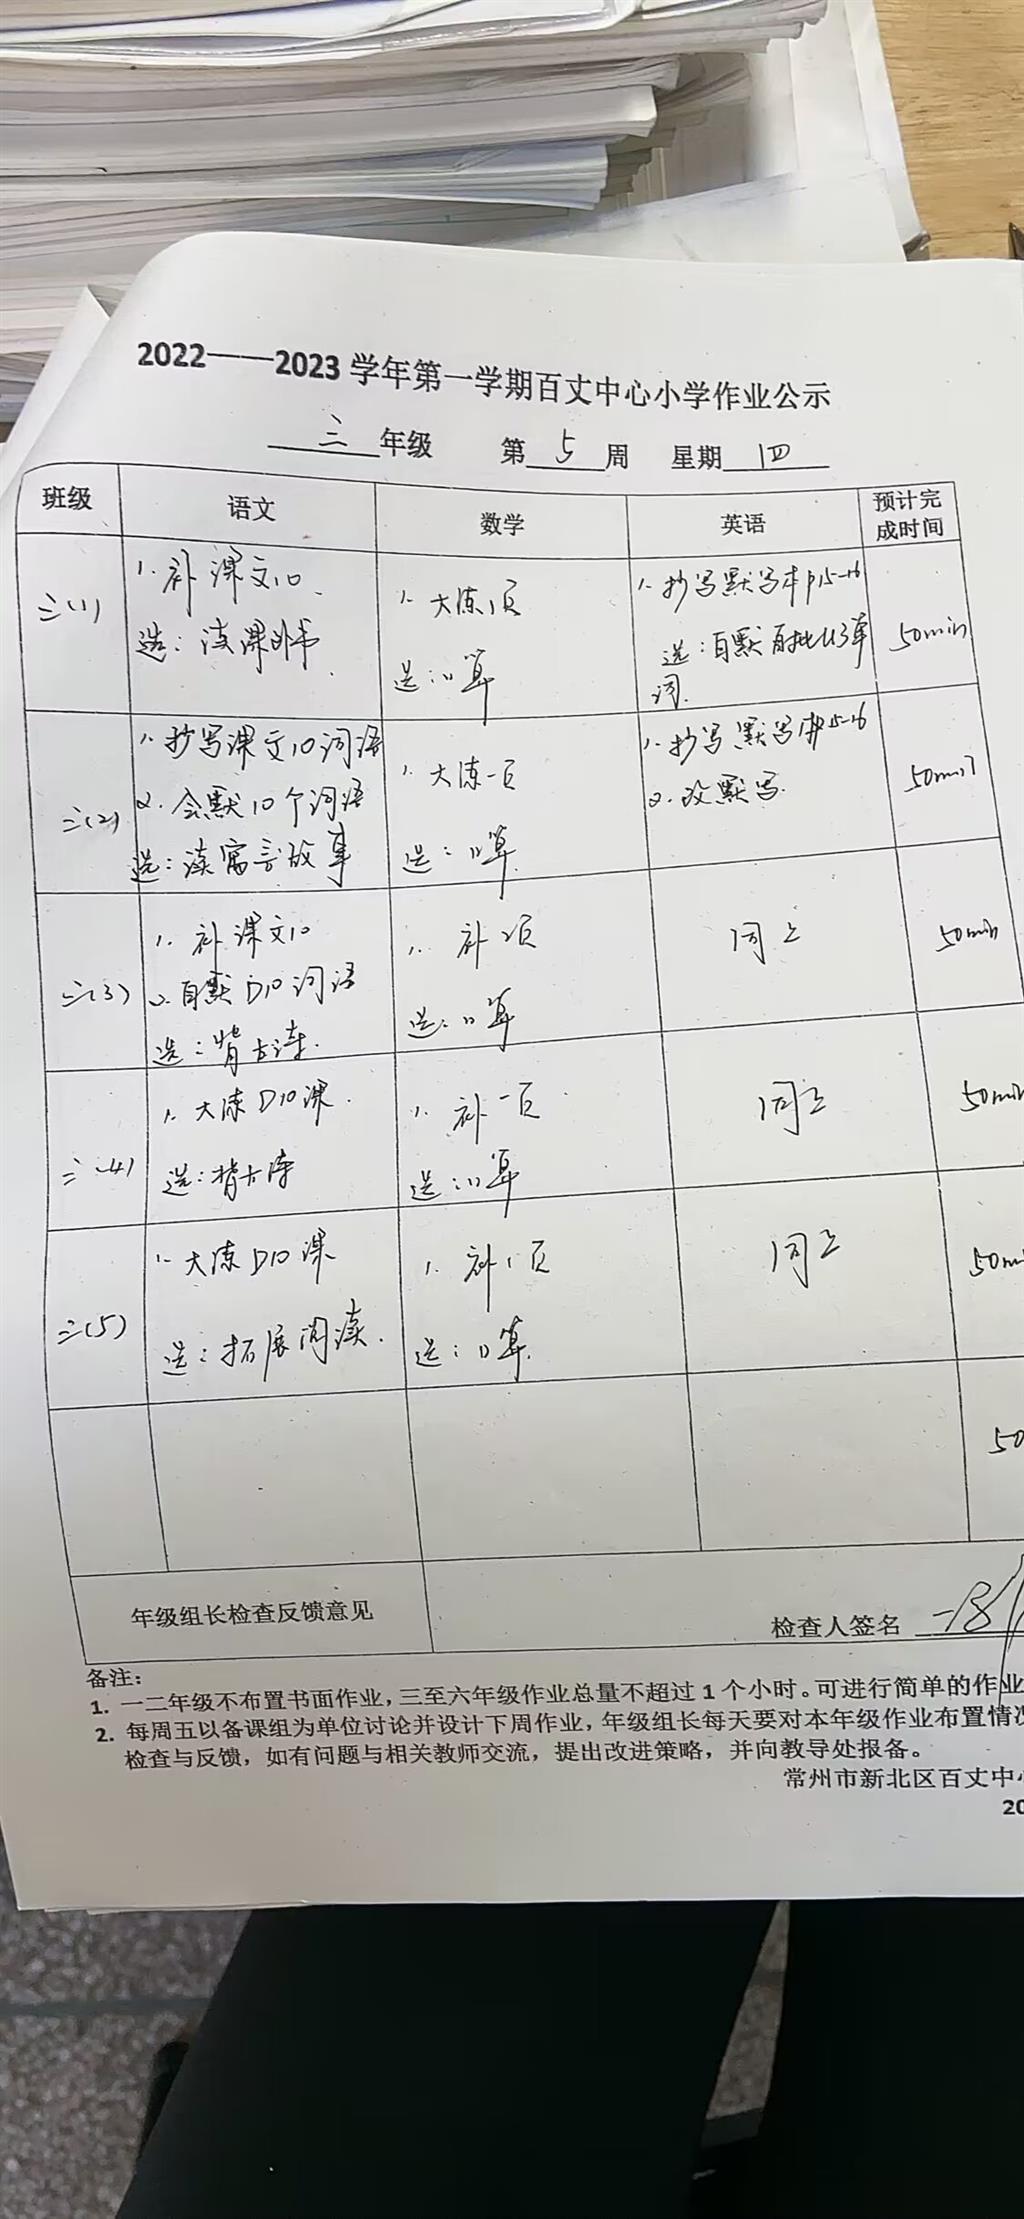 2022——2023学年第一学期百丈中心小学作业公示
三 年级 第 5 周 星期 四
班级 语文 数学 英语 预计完成时间
三(1)
1. 补课文10.
选：读课外书.
1. 大练1页
选：口算
1. 抄写默写本P15-16
选：自默自批U3单词.
50min
三(2)
1. 抄写课文10词语
2. 会默10个词语
选：读寓言故事
1. 大练一页
选：口算
1. 抄写默写本P15-16
2. 改默写.
50min
三(3)
1. 补课文10
2. 自默D10词语
选：背古诗.
1. 补2页
选：口算
同上
50min
三(4)
1. 大练D10课.
选：背古诗
1. 补一页.
选：口算
同上
50min
三(5)
1. 大练D10课
选：拓展阅读.
1. 补1页
选：口算.
同上
50m
50
年级组长检查反馈意见
检查人签名
备注：
1. 一二年级不布置书面作业，三至六年级作业总量不超过1个小时。可进行简单的作业
2. 每周五以备课组为单位讨论并设计下周作业，年级组长每天要对本年级作业布置情况
检查与反馈，如有问题与相关教师交流，提出改进策略，并向教导处报备。
常州市新北区百丈中心
20